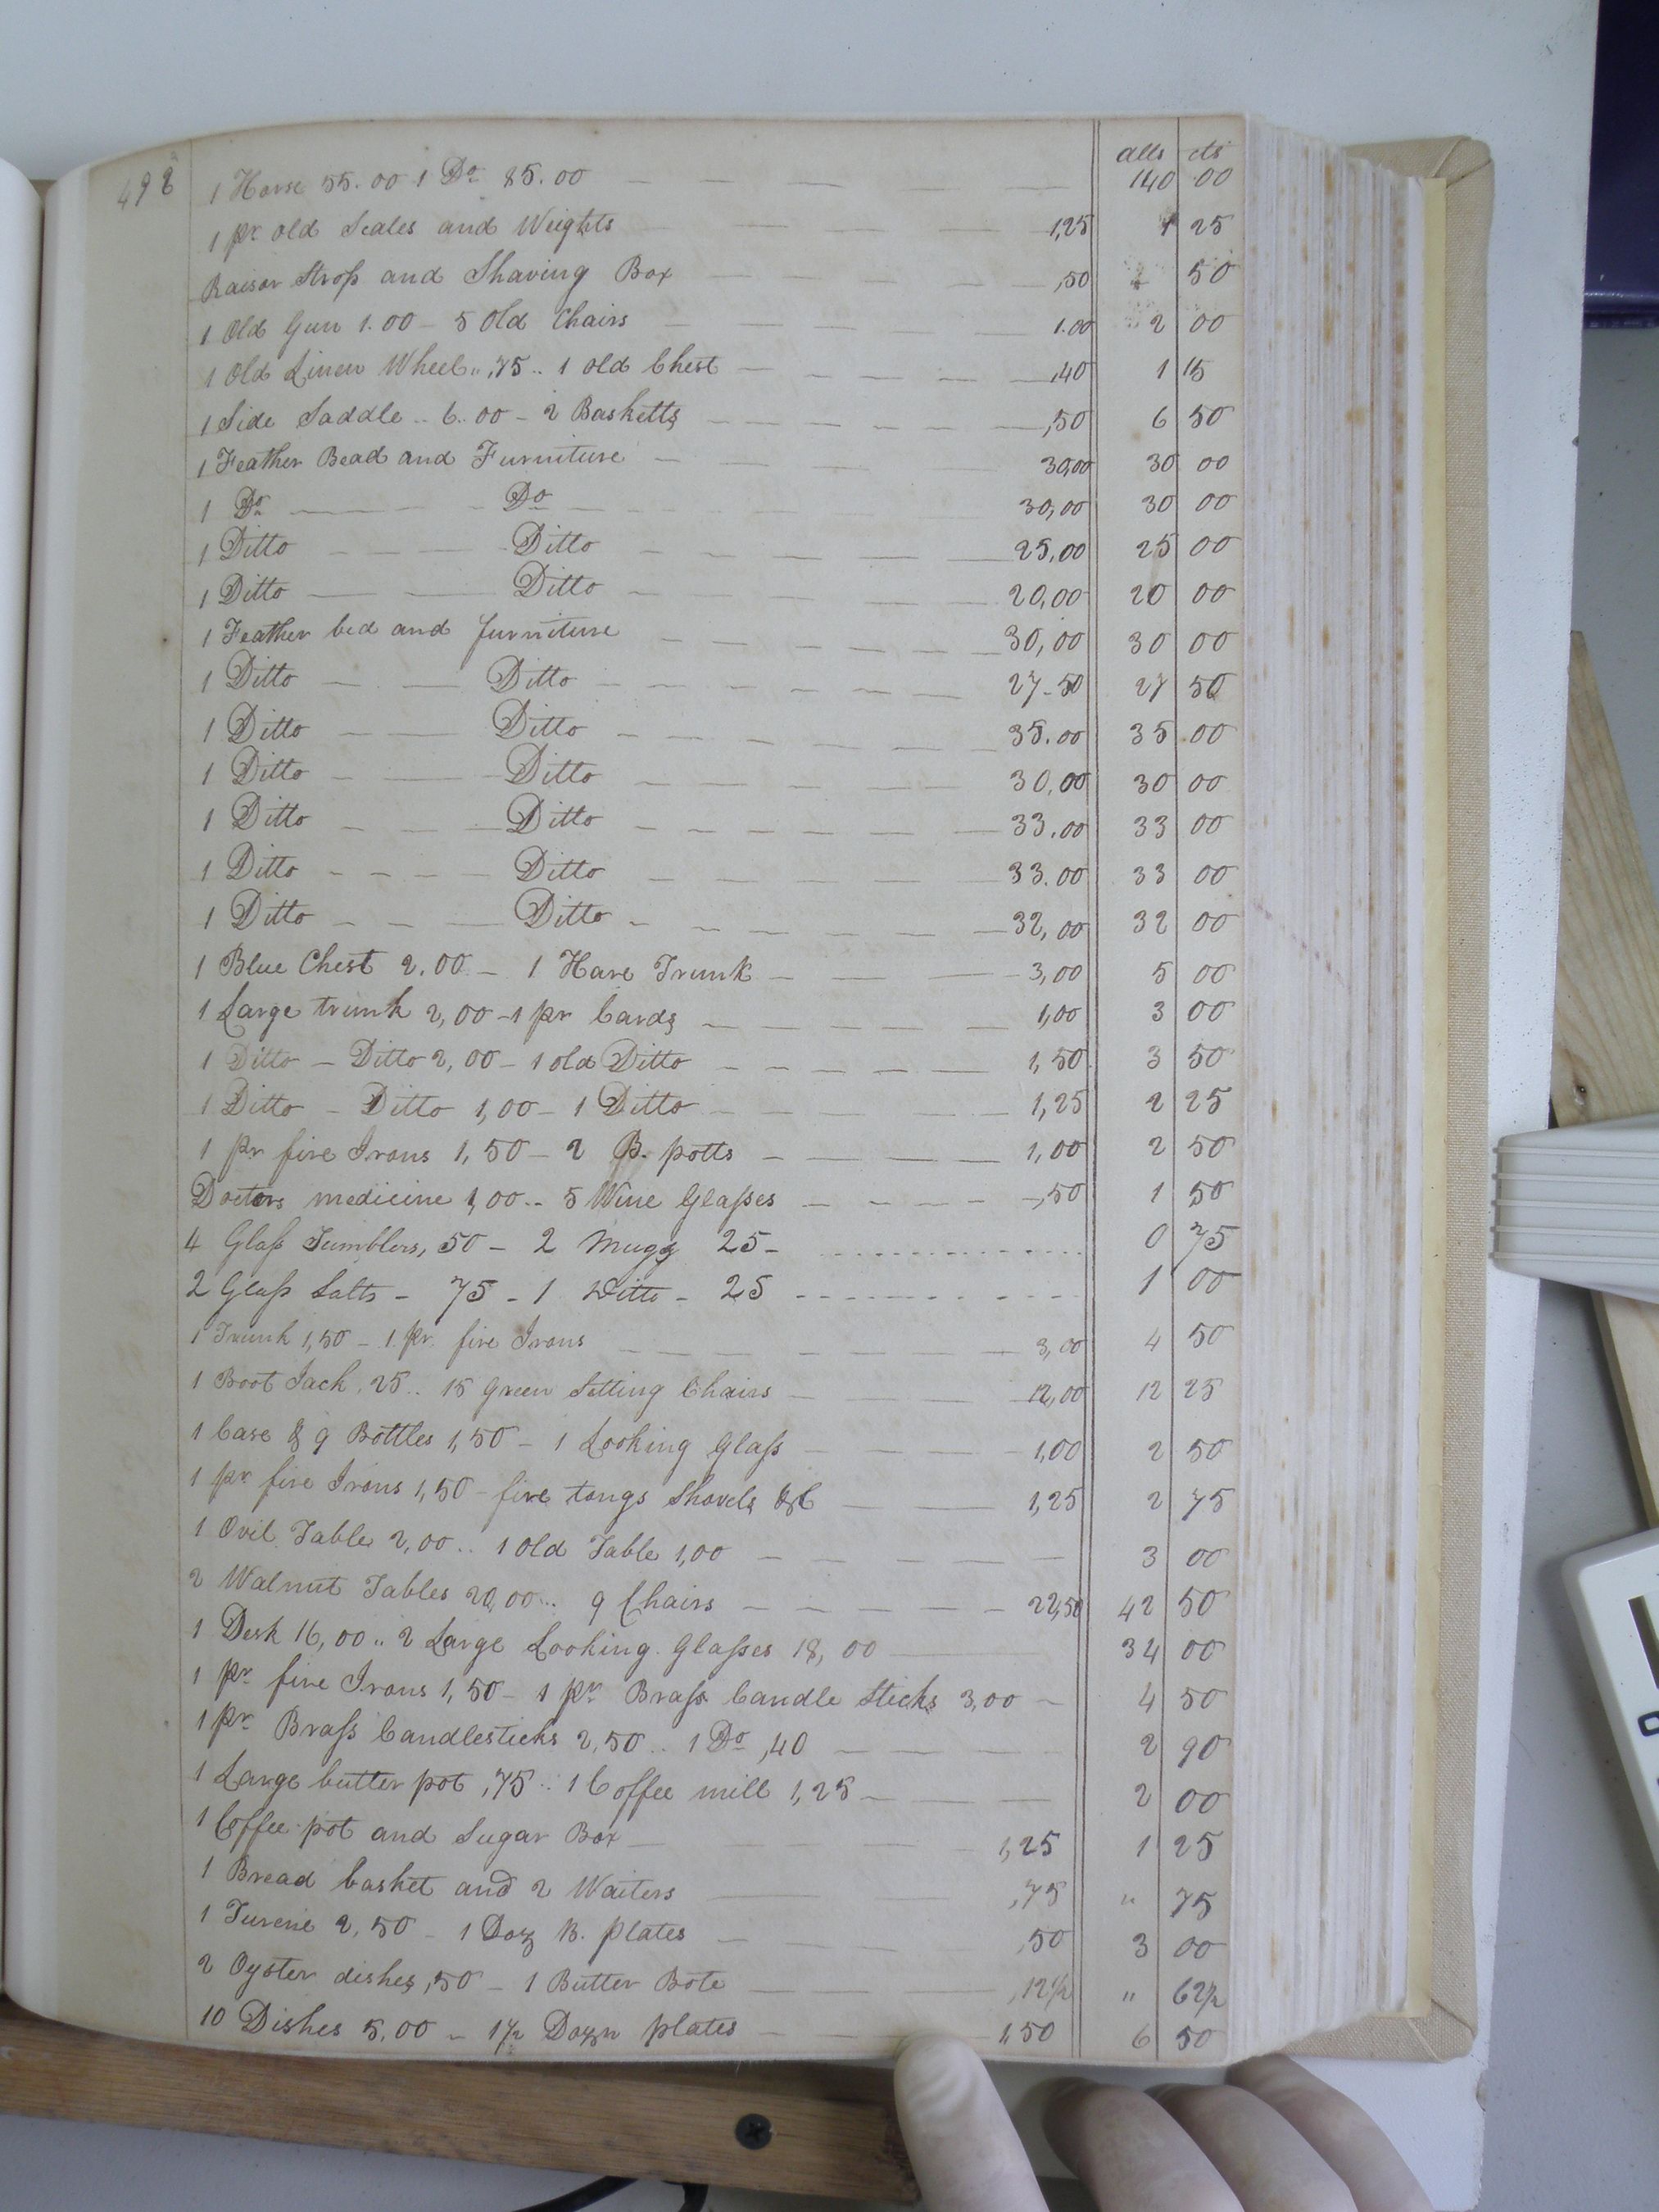 498 dlls cts
1 Horse 55.00 1 Do 85.00 140 00
1 pr old Scales and Weights 1,25 1 25
Raisor Strop and Shaving Box ,50 50
1 Old Gun 1.00 - 5 Old Chairs 1.00 2 00
1 Old Linen Wheel ,, ,75 .. 1 old Chest ,40 1 15
1 Side Saddle .. 6.00 - 2 Basketts ,50 6 50
1 Feather Bead and Furniture 30,00 30 00
1 Do Do 30,00 30 00
1 Ditto Ditto 25,00 25 00
1 Ditto Ditto 20,00 20 00
1 Feather bed and furniture 30,00 30 00
1 Ditto Ditto 27-50 27 50
1 Ditto Ditto 35.00 35 00
1 Ditto Ditto 30,00 30 00
1 Ditto Ditto 33.00 33 00
1 Ditto Ditto 33.00 33 00
1 Ditto Ditto 32,00 32 00
1 Blue Chest 2.00 - 1 Hare Trunk 3,00 5 00
1 Large trunk 2,00 - 1 pr Cards 1,00 3 00
1 Ditto - Ditto 2,00 - 1 old Ditto 1,50 3 50
1 Ditto - Ditto 1,00 - 1 Ditto 1,25 2 25
1 pr fire Irons 1,50 - 2 B. potts 1,00 2 50
Doctors medicine 1,00 .. 5 Wine Glasses ,50 1 50
4 Glass Tumblers, 50 - 2 Mugs 25 - 0 75
2 Glass Salts - 75 - 1 Ditto - 25 1 00
1 Trunk 1,50 - 1 pr fire Irons 3,00 4 50
1 Boot Jack ,25 .. 15 Green Setting Chairs 12,00 12 25
1 Case & 9 Bottles 1,50 - 1 Looking Glass 1,00 2 50
1 pr fire Irons 1,50 - fire tongs Shovels &C 1,25 2 75
1 Ovil Table 2,00 .. 1 Old Table 1,00 3 00
2 Walnut Tables 20,00 .. 9 Chairs 22,50 42 50
1 Desk 16,00 ,, 2 Large Looking Glasses 18,00 34 00
1 Pr fire Irons 1,50 - 1 pr Brass Candle Sticks 3,00 4 50
1 pr Brass Candlesticks 2,50 .. 1 Do ,40 2 90
1 Large butter pot ,75 .. 1 Coffee mill 1,25 2 00
1 Coffee pot and Sugar Box 1,25 1 25
1 Bread basket and 2 Waiters ,75 " 75
1 Turene 2,50 - 1 Doz B. plates ,50 3 00
2 Oyster dishes ,50 - 1 Butter Bote ,12 1/2 " 62 1/2
10 Dishes 5,00 - 1 1/2 Dozn plates 1,50 6 50